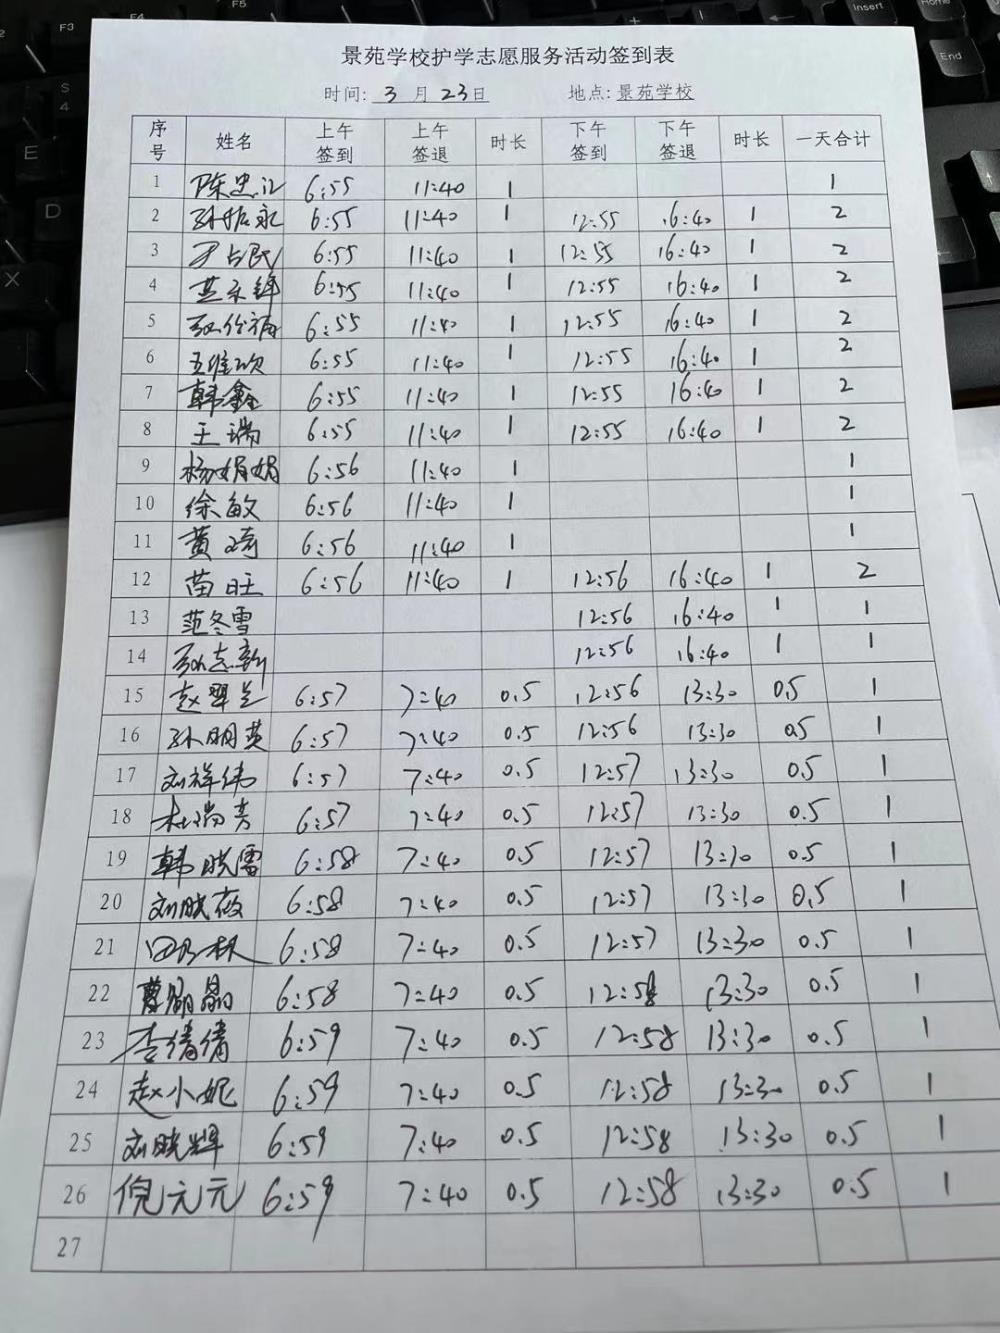 景苑学校护学志愿服务活动签到表
时间: 3 月 23日 地点: 景苑学校
序号 姓名 上午签到 上午签退 时长 下午签到 下午签退 时长 一天合计
1 陈忠江 6:55 11:40 1 1
2 孙振永 6:55 11:40 1 12:55 16:40 1 2
3 占民 6:55 11:40 1 12:55 16:40 1 2
4 永锋 6:55 11:40 1 12:55 16:40 1 2
5 6:55 11:40 1 12:55 16:40 1 2
6 王维欢 6:55 11:40 1 12:55 16:40 1 2
7 韩鑫 6:55 11:40 1 12:55 16:40 1 2
8 王瑞 6:55 11:40 1 12:55 16:40 1 2
9 杨娟娟 6:56 11:40 1 1
10 徐敏 6:56 11:40 1 1
11 黄琦 6:56 11:40 1 1
12 苗旺 6:56 11:40 1 12:56 16:40 1 2
13 范冬雪 12:56 16:40 1 1
14 志新 12:56 16:40 1 1
15 赵翠兰 6:57 7:40 0.5 12:56 13:30 0.5 1
16 孙明英 6:57 7:40 0.5 12:56 13:30 0.5 1
17 刘祥伟 6:57 7:40 0.5 12:57 13:30 0.5 1
18 杜瑞芳 6:57 7:40 0.5 12:57 13:30 0.5 1
19 韩晓雪 6:58 7:40 0.5 12:57 13:30 0.5 1
20 刘晓薇 6:58 7:40 0.5 12:57 13:30 0.5 1
21 田乃林 6:58 7:40 0.5 12:57 13:30 0.5 1
22 曹明晶 6:58 7:40 0.5 12:58 13:30 0.5 1
23 李倩倩 6:59 7:40 0.5 12:58 13:30 0.5 1
24 赵小妮 6:59 7:40 0.5 12:58 13:30 0.5 1
25 刘晓辉 6:59 7:40 0.5 12:58 13:30 0.5 1
26 倪元元 6:59 7:40 0.5 12:58 13:30 0.5 1
27